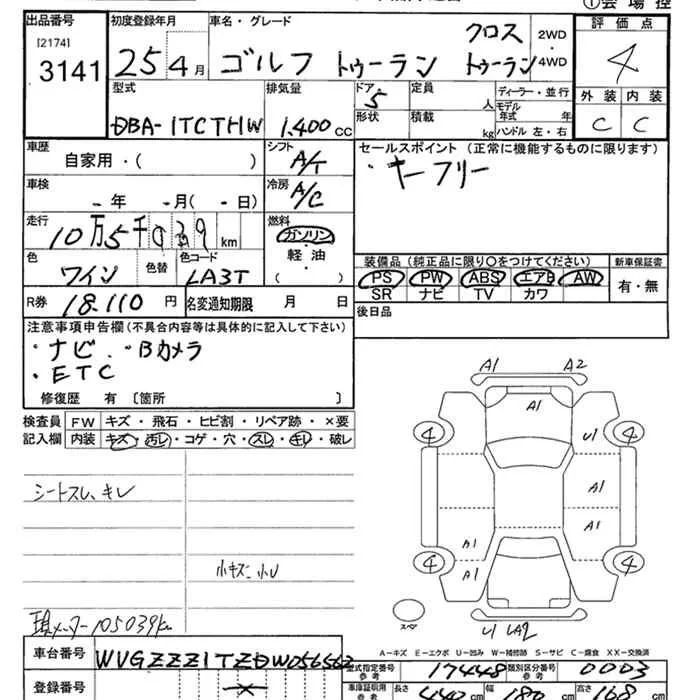 ①会場控
出品番号
[2174]
3141
初度登録年月
25 4月
車名・グレード
クロス
ゴルフ トゥーラン トゥーラン
2WD
4WD
評価点
4
外装 内装
C C
型式
DBA-1TCTHW
排気量
1.400 cc
ドア
5
定員
人
形状
積載
kg
ディーラー・並行
モデル
年式 年
ハンドル 左・右
車歴
自家用・( )
シフト
A/T
セールスポイント (正常に機能するものに限ります)
・キーフリー
車検
- 年 - 月( - 日)
冷房
A/C
走行
10万5千039 km
燃料
ガソリン
軽油
( )
色
ワイン
色替
色コード
LA3T
装備品 (純正品に限り○をつけてください)
PS PW ABS エアB AW
SR ナビ TV カワ
新車保証書
有・無
R券 18.110 円
名変通知期限 月 日
後日品
注意事項申告欄(不具合内容等は具体的に記入して下さい)
・ナビ ・Bカメラ
・ETC
修復歴 有 〔箇所 〕
検査員
記入欄
FW キズ・飛石・ヒビ割・リペア跡・×要
内装 キズ・汚レ・コゲ・穴・スレ・キレ・破レ
シートスレ、キレ
小キズ 小U
現メーター105039km
A1 A2
A1
4 4
U1
A1
A1
A1
A1
4 4
スペア
U1 LA2
A−キズ E−エクボ U−凹み W−補修跡 S−サビ C−腐食 XX−交換済
車台番号
WVGZZZ1TZDW056562
型式指定番号
参考
17448
類別区分番号
参考
0003
登録番号
車庫証明用
参考
長さ
440 cm
幅
180 cm
高さ
168 cm